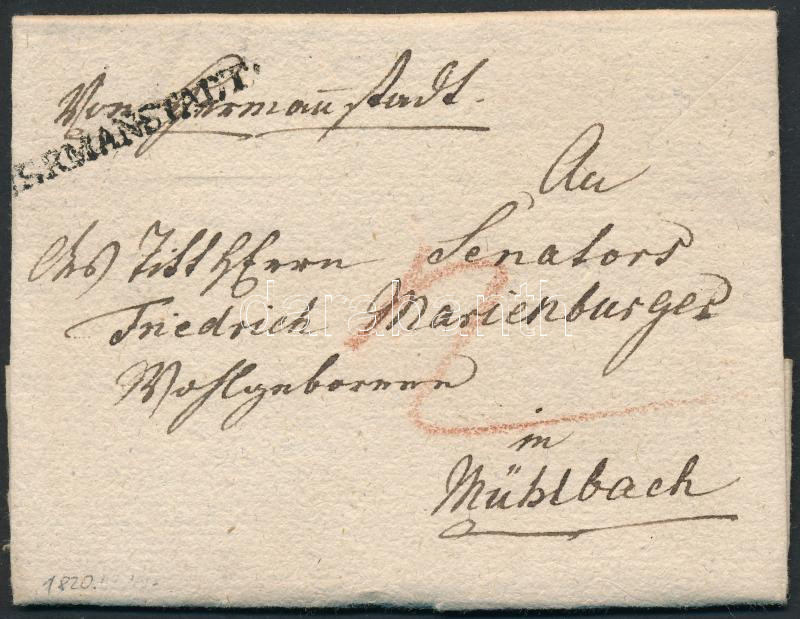 Von Hermannstadt.
HERMANSTADT.
An
des Titt HErrn Senators
Friedrich Marienburger
Wohlgeboren
in
Mühlbach
2
1820.
darabanth